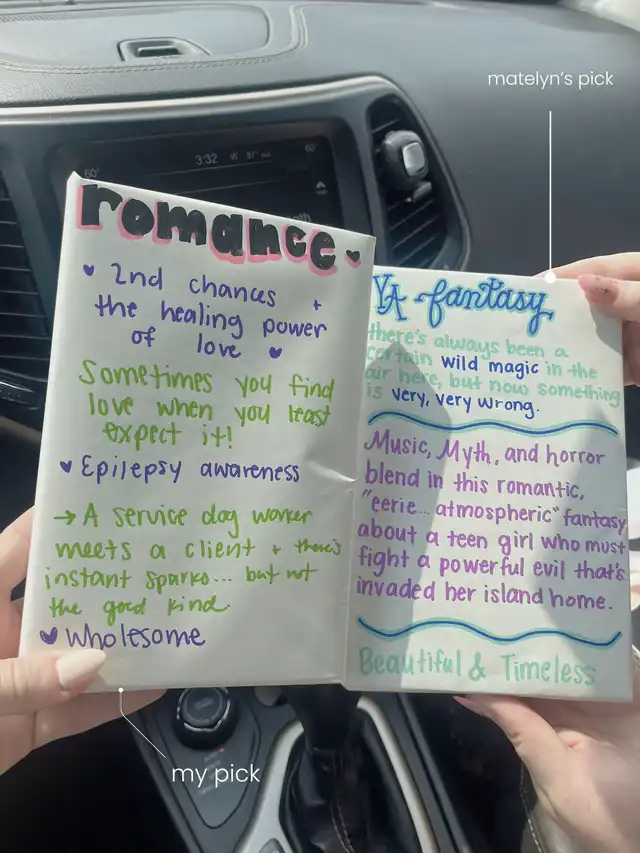 matelyn's pick
3:32 W 87° out
60°
60°
romance
2nd chances +
the healing power
of love
Sometimes you find
love when you least
expect it!
Epilepsy awareness
→ A service dog worker
meets a client + there's
instant sparks... but not
the good kind.
Wholesome
YA fantasy
there's always been a
certain wild magic in the
air here, but now something
is very, very wrong.
Music, Myth, and horror
blend in this romantic,
"eerie... atmospheric" fantasy
about a teen girl who must
fight a powerful evil that's
invaded her island home.
Beautiful & Timeless
my pick